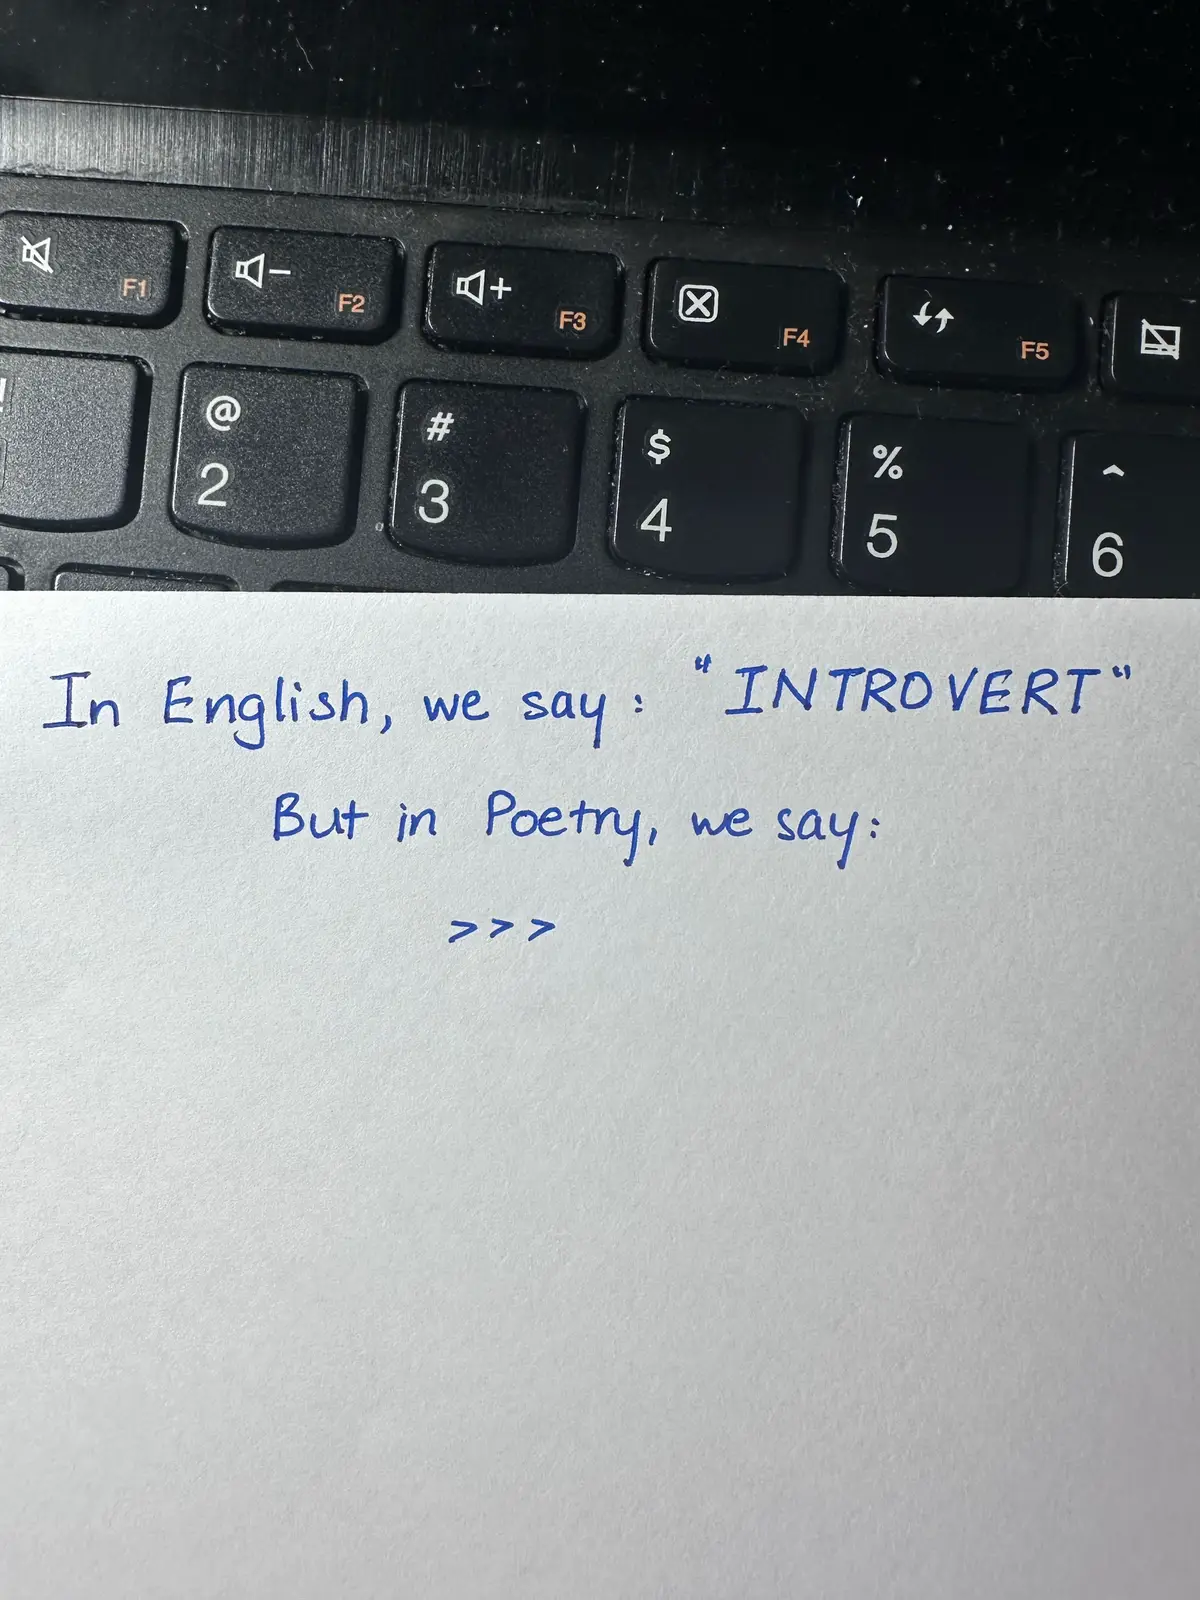 F1 F2 F3 F4 F5
@ # $ % ^
2 3 4 5 6
In English, we say: "INTROVERT"
But in Poetry, we say:
>>>